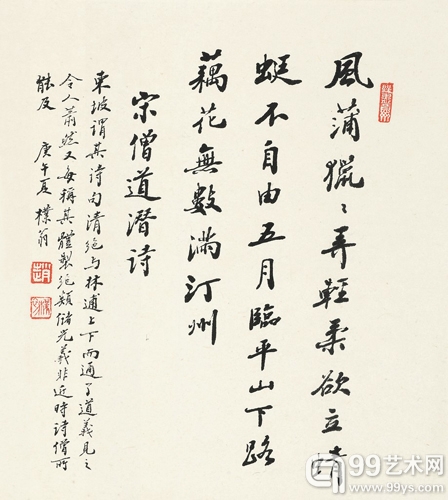 風蒲獵〻弄輕柔欲立蜻
蜓不自由五月臨平山下路
藕花無數滿汀州
宋僧道潛詩
東坡謂其詩句清絕与林逋上下而通了道義見之
令人蕭然又每稱其體製絕類儲光羲非近時詩僧所
能及 庚午夏 樸翁
趙
99艺术网
www.99ys.com